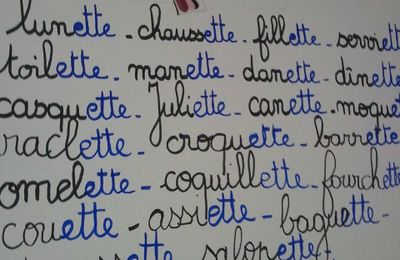 lunette - chaussette - fillette - serviett
toilette - manette - danette - dînett
casquette - Juliette - canette - moquet
raclette - croquette - barrette
omelette - coquillette - fourchett
couette - assiette - baguette -